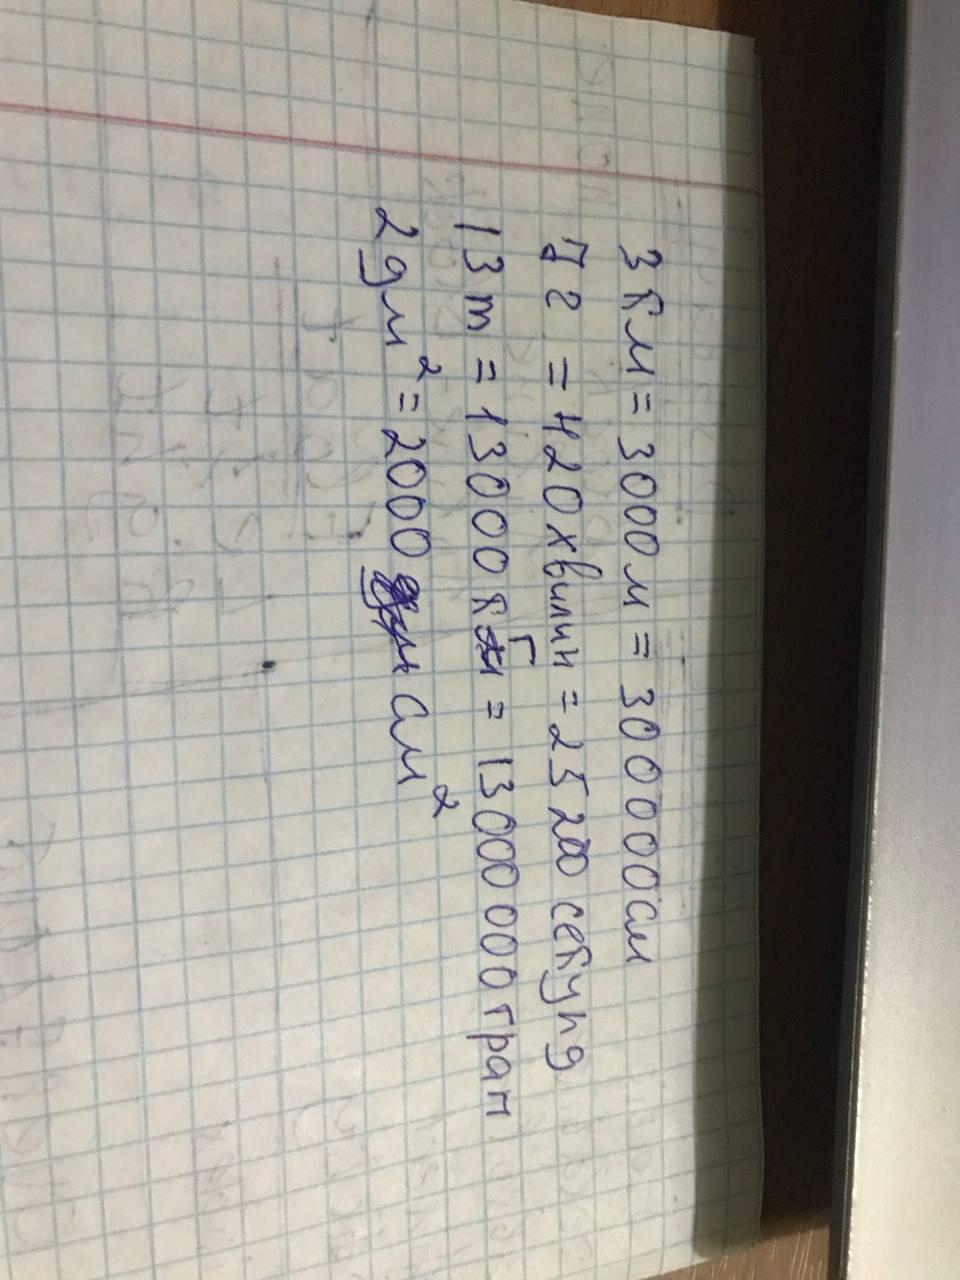 3 км = 3000 м = 300000 см
7 г = 420 хвилин = 25 200 секунд
13 т = 13000 кг = 13000 000 грам
2 дм² = 2000 см²